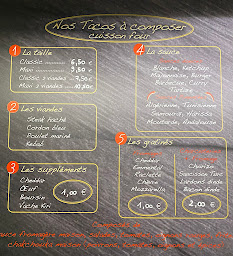 Nos Tacos à composer
cuisson four
1 La taille
Classic 6,50 €
Maxi 8,50 €
Classic 2 viandes 7,50€
Maxi 2 viandes 10,50€
2 Les viandes
Steak haché
Cordon bleu
Poulet mariné
Kebab
3 Les suppléments
Cheddar
Œuf
Boursin
Vache Kiri
1,00 €
4 La sauce
Blanche, Ketchup
Mayonnaise, Burger
Barbecue, Curry
Tartare
Algérienne, Tunisienne
Samouraï, Harissa
Moutarde, Andalouse
5 Les gratinés
Cheddar
Emmental
Raclette
Chèvre
Mozzarella
1,00 €
Chorizo
Saucisse Turc
Lardons dinde
Bacon dinde
2,00 €
sauce fromagère maison